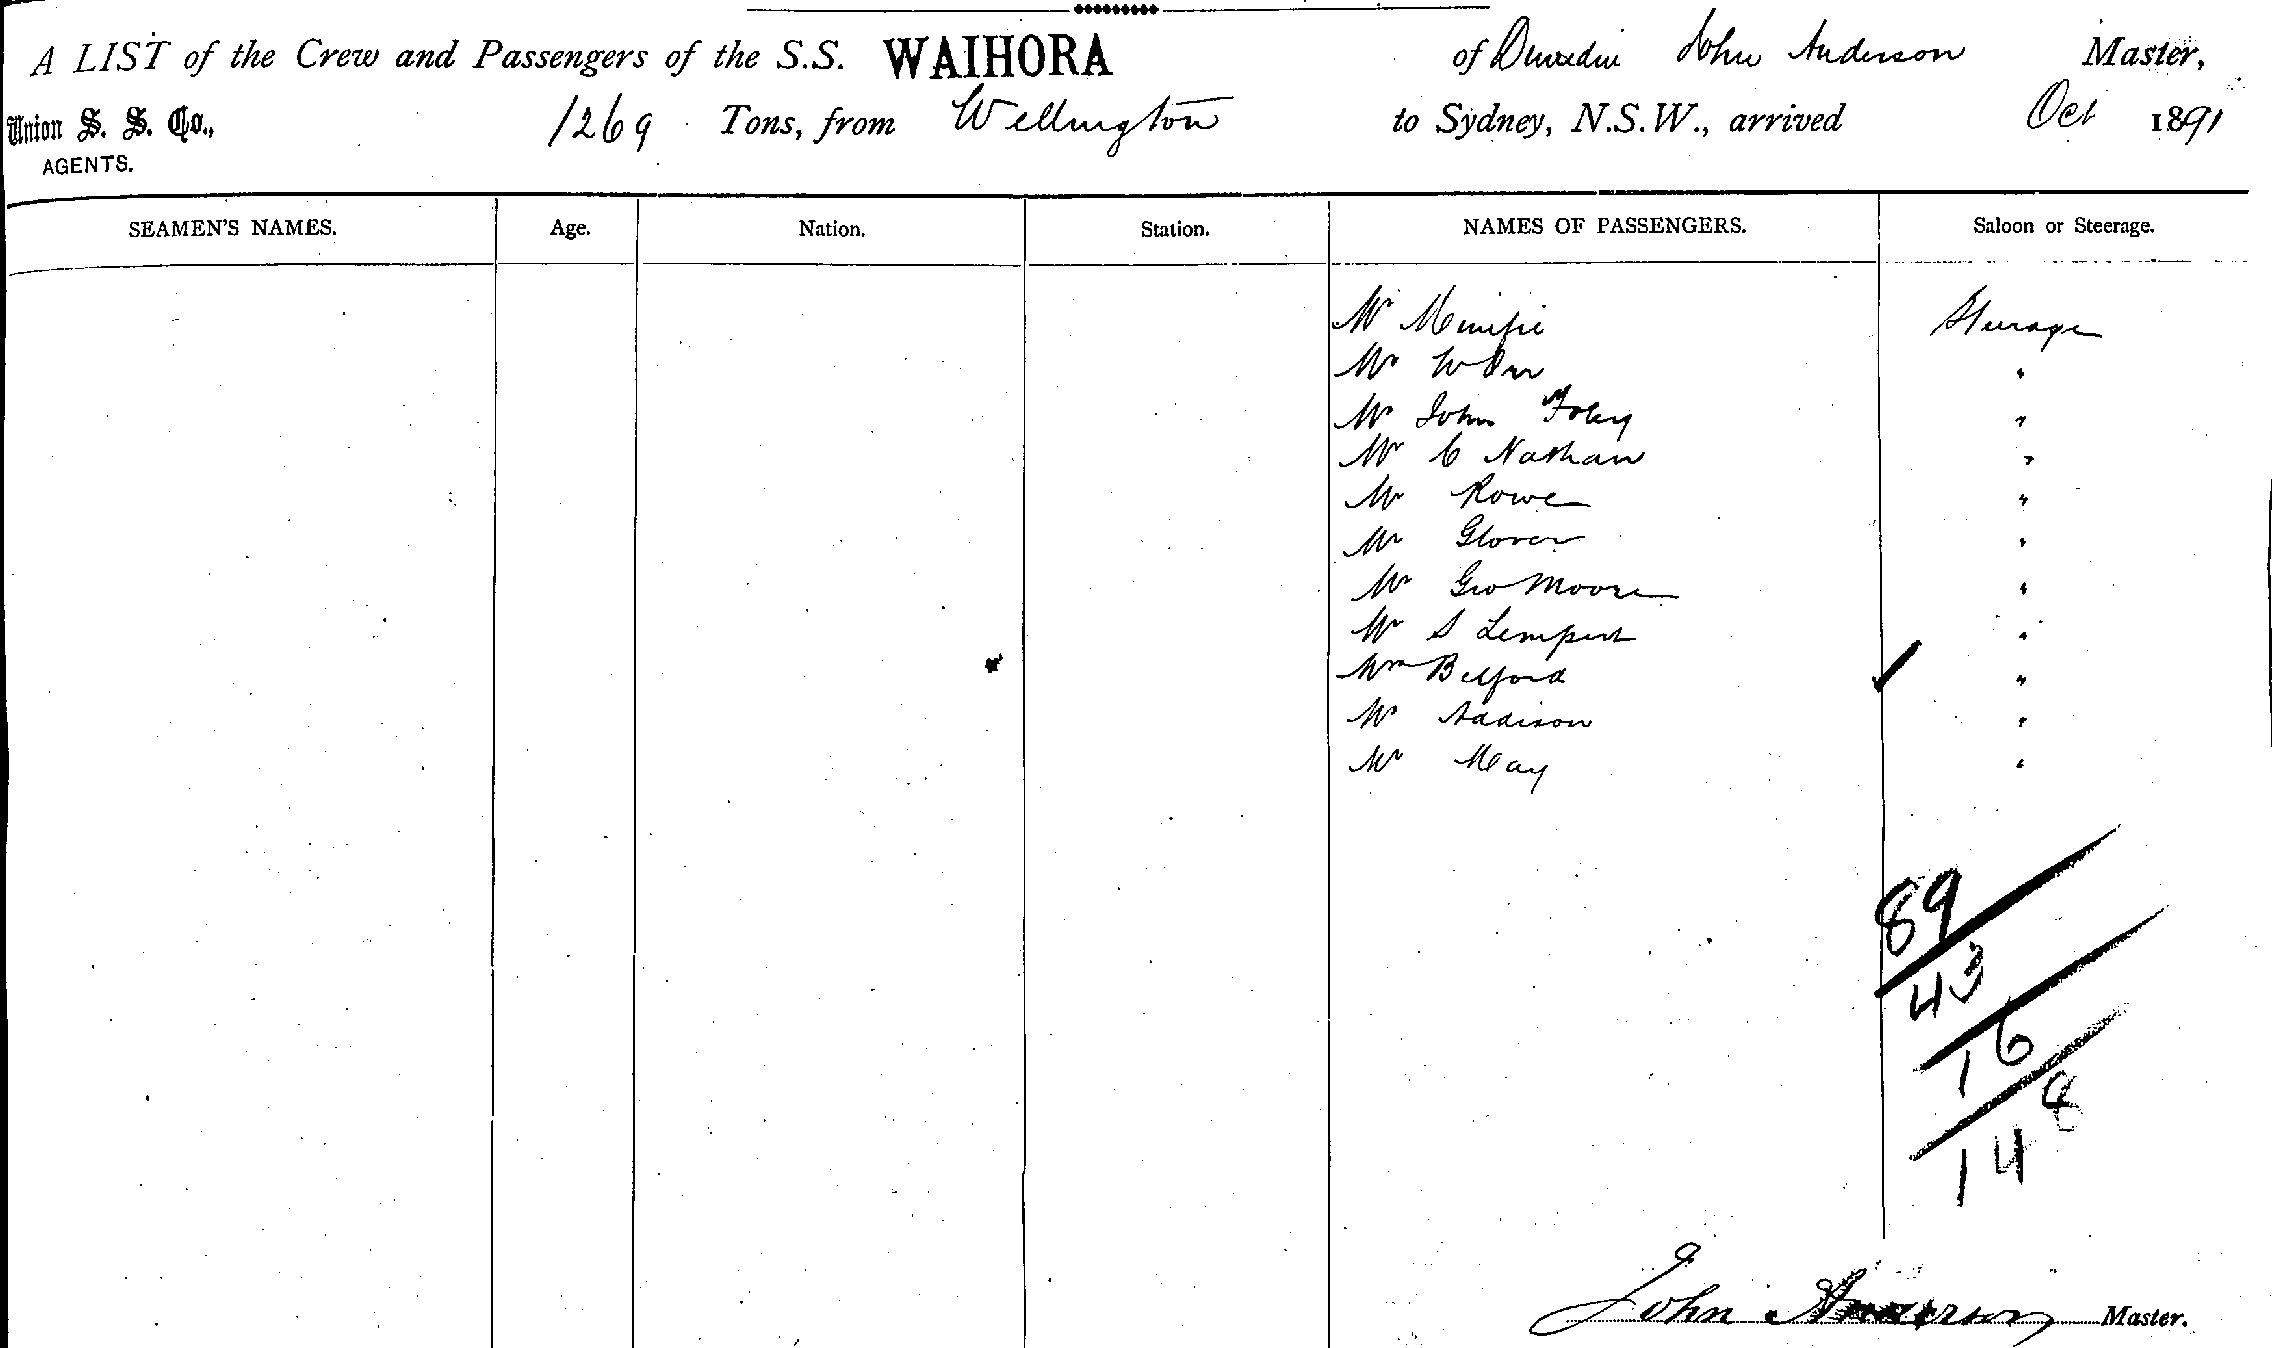 A LIST of the Crew and Passengers of the S.S. WAIHORA of Dunedin John Anderson Master,
Union S. S. Co., 1269 Tons, from Wellington to Sydney, N.S.W., arrived Oct 1891
AGENTS.
SEAMEN'S NAMES. Age. Nation. Station. NAMES OF PASSENGERS. Saloon or Steerage.
Mr Minifie Steerage
Mr W Orr "
Mr John Foley "
Mr C Nathan "
Mr Rowe "
Mr Glover "
Mr Geo Moore "
Mr S Lempert "
Mrs Belford "
Mr Addison "
Mr May "
89
43
16
148
John Anderson Master.